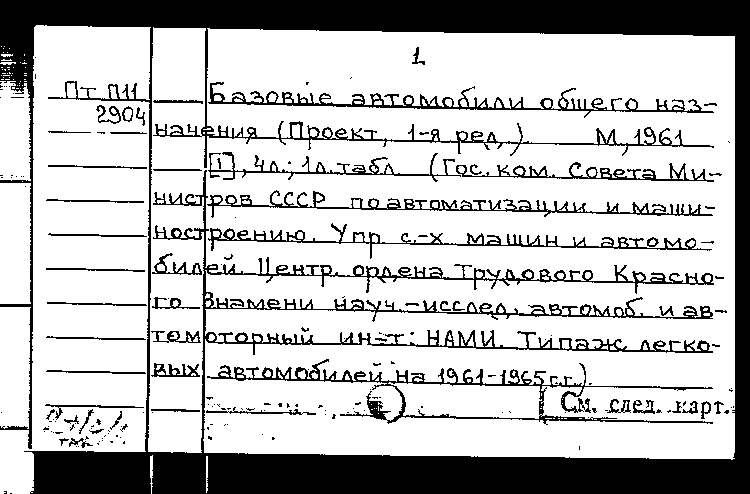 1
Пт П11
2904
Базовые автомобили общего наз-
начения (Проект, 1-я ред.) М., 1961
[1], 4л.; 1л. табл. (Гос. ком. Совета Ми-
нистров СССР по автоматизации и маши-
ностроению. Упр. с.-х. машин и автомо-
билей. Центр. ордена Трудового Красно-
го Знамени науч.-исслед. автомоб. и ав-
томоторный ин-т: НАМИ. Типаж легко-
вых автомобилей на 1961-1965 г.г.).
См. след. карт.